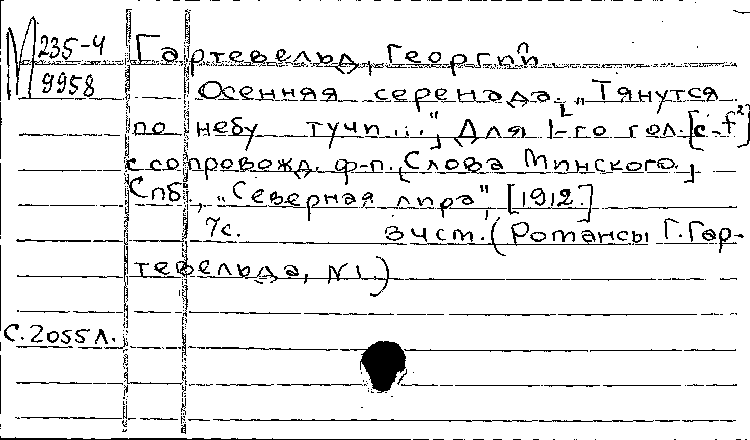 М 235-4 Гартевельд, Георгий.
9958 Осенняя серенада. [„Тянутся
по небу тучи..."] Для 1-го гол. [c-f²]
с сопровожд. ф-п. [Слова Минского.]
Спб., „Северная лира", [1912.]
7с. (Романсы Г. Гар-
тевельда, N1.)
С. 2055 Л.